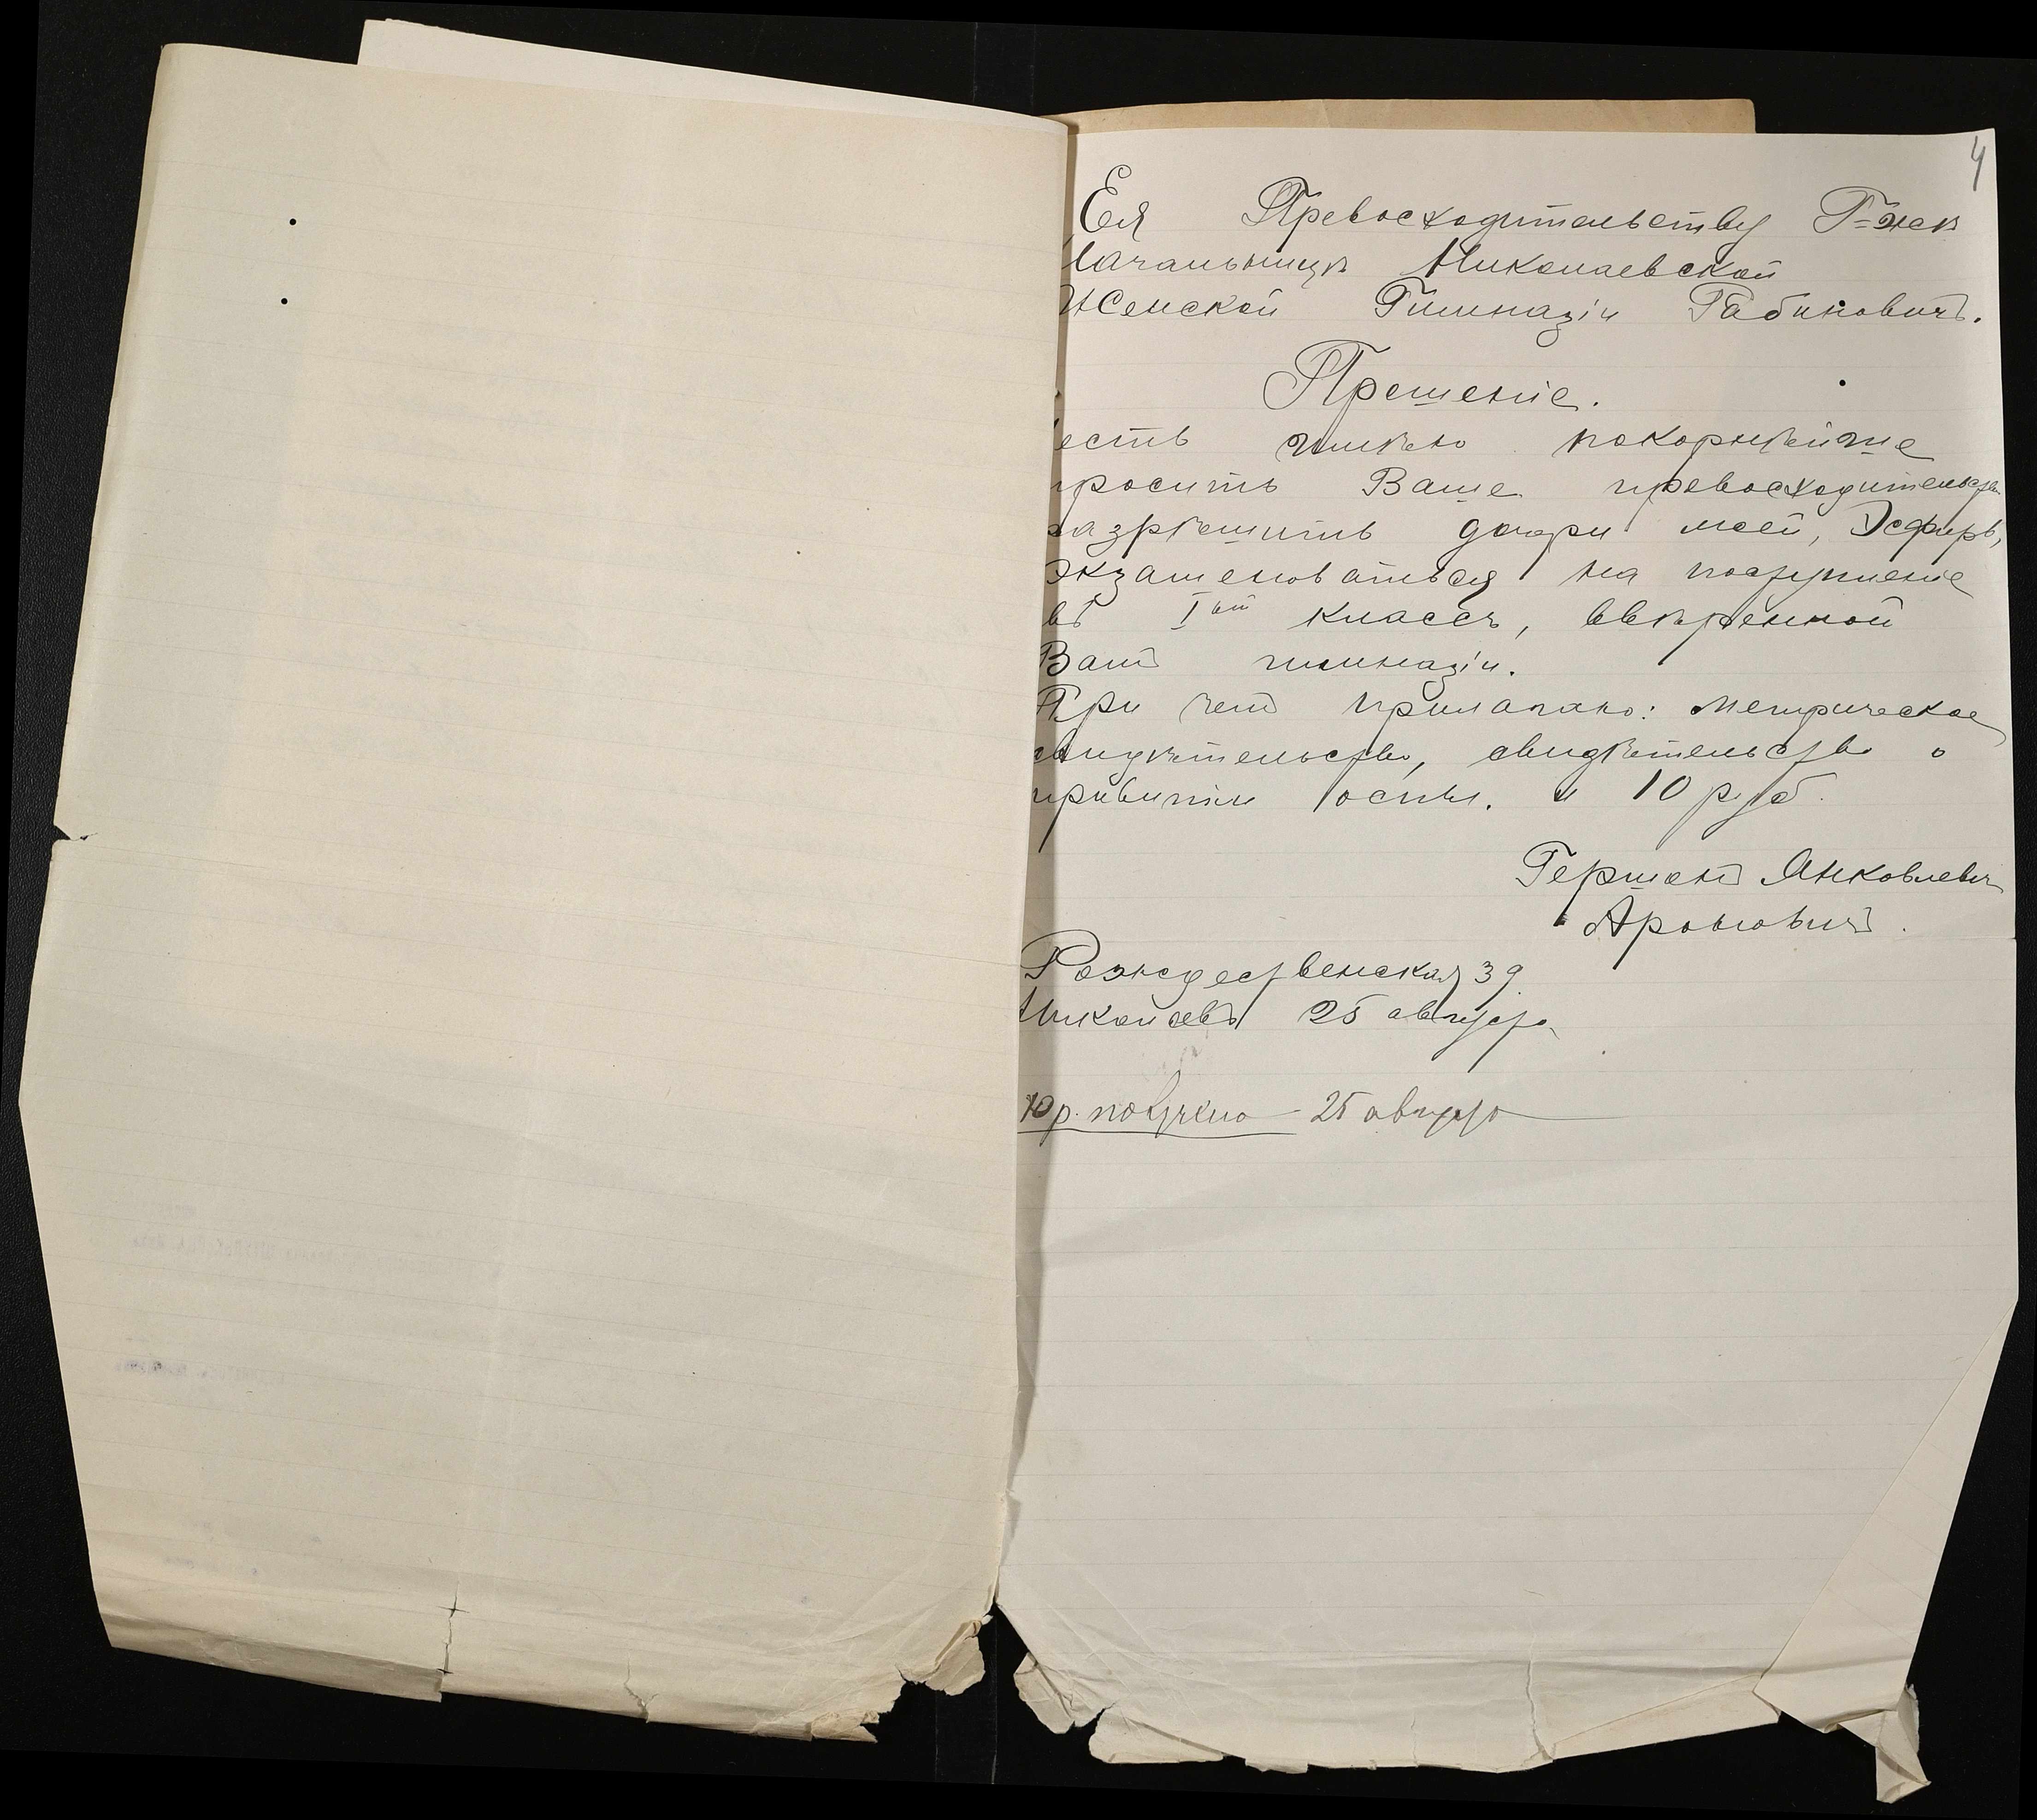 4
Ея Превосходительству Г-жѣ
Начальницѣ Николаевской
Женской Гимназіи Рабиновичъ.
Прошеніе.
Честь имѣю покорнѣйше
просить Ваше превосходительство
разрѣшить дочери моей, Эсфирь,
экзаменоваться на поступленіе
въ Iый классъ, ввѣренной
Вамъ гимназіи.
При чемъ прилагаю: Метрическое
свидѣтельство, свидѣтельство о
привитіи оспы. и 10 руб.
Гершонъ Янковлевич
Ароновичъ.
Рождественская 39
Николаевъ 25 августа
10 р. получено - 25 августа